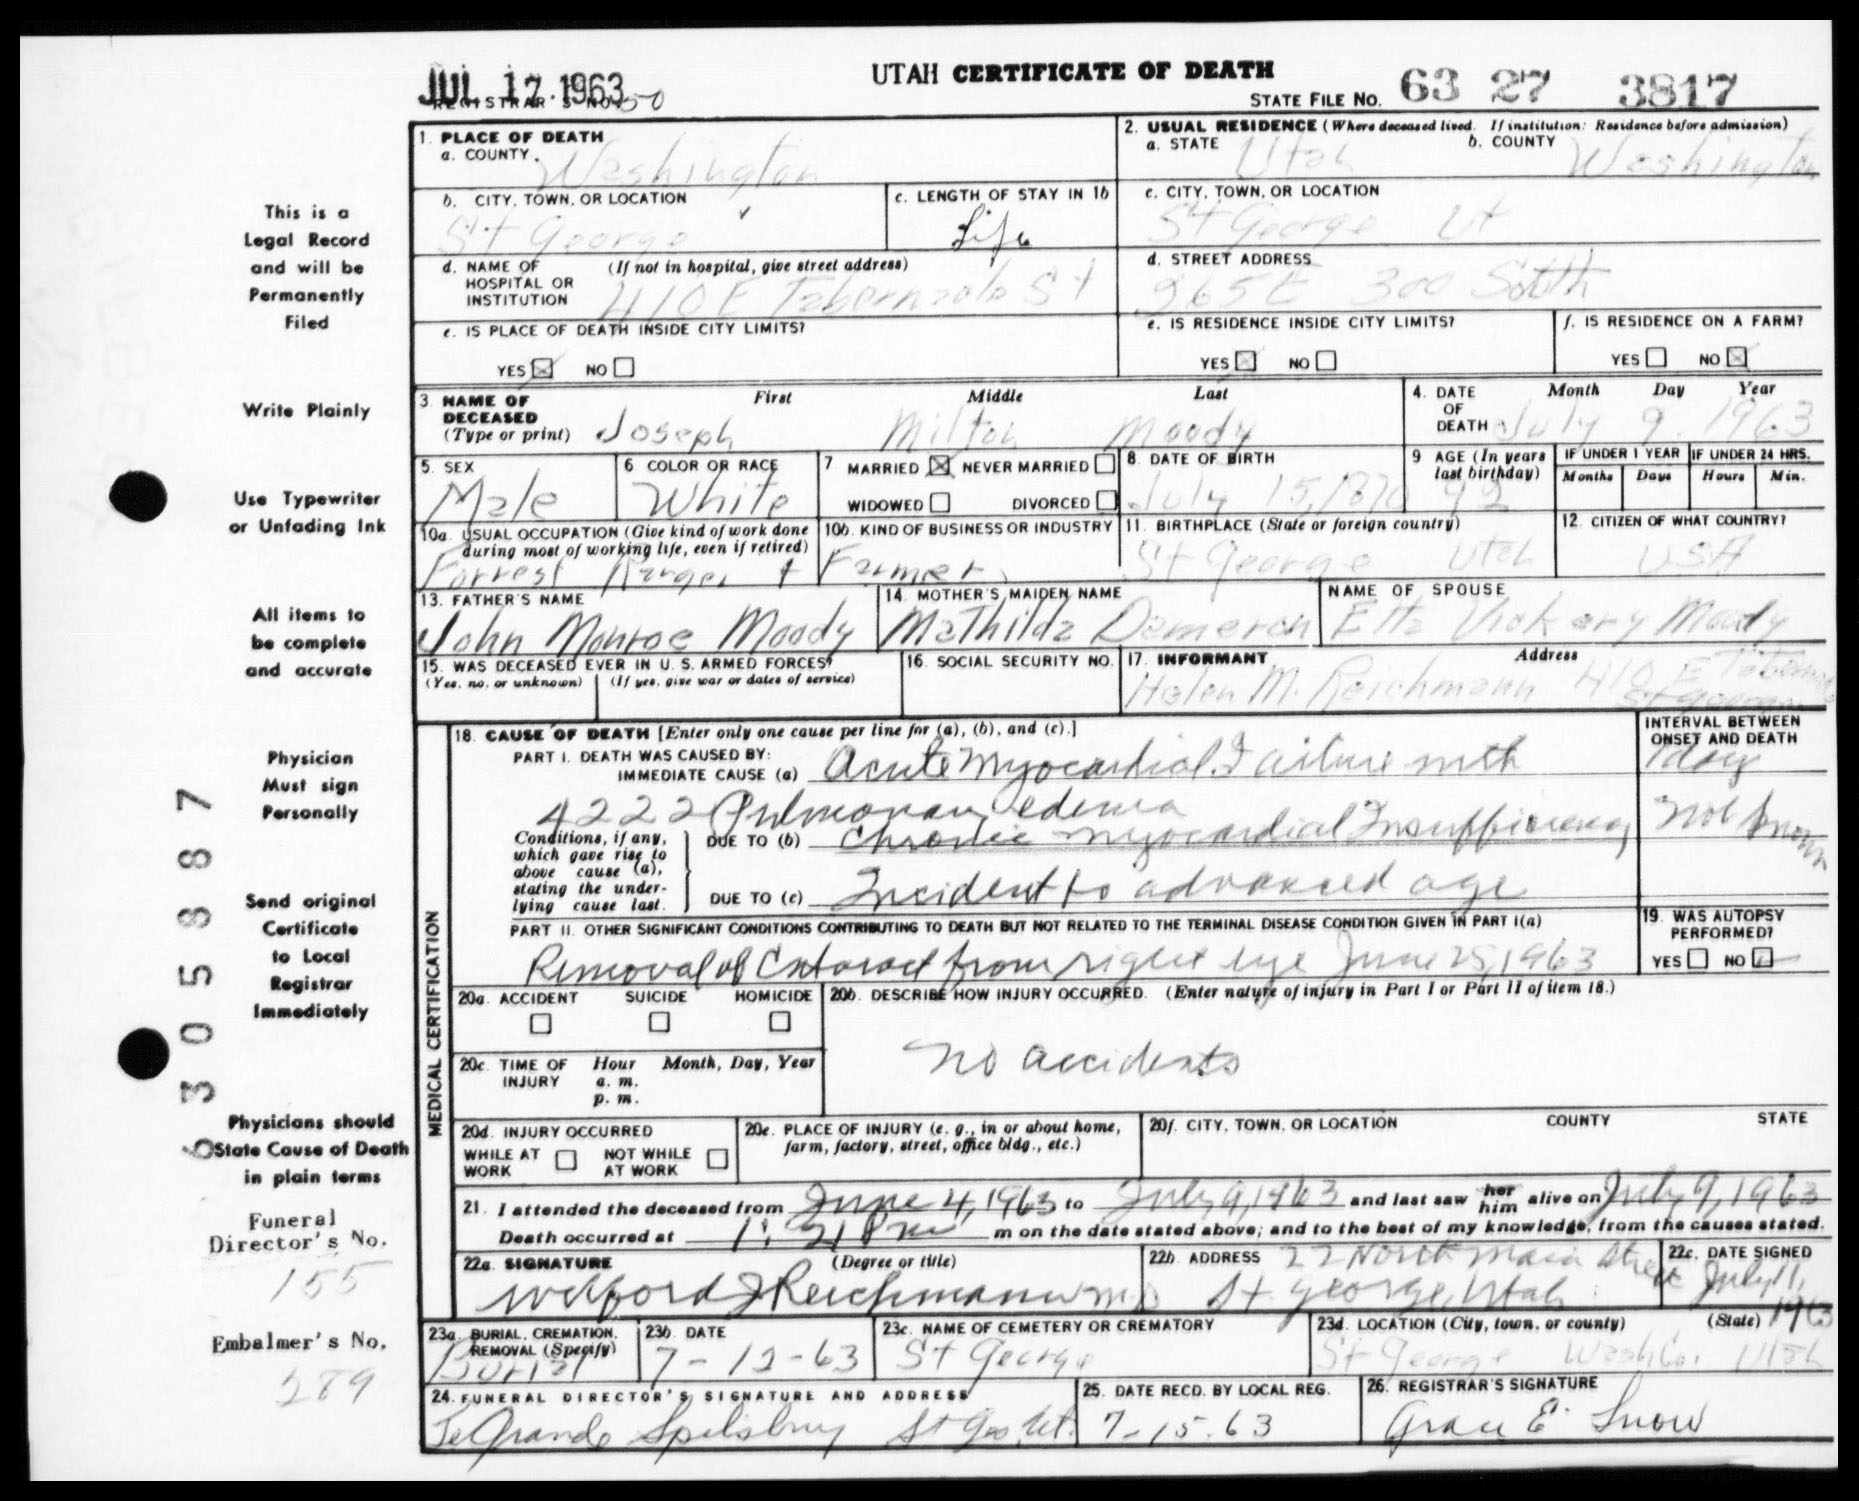 UTAH CERTIFICATE OF DEATH
JUL 17 1963
REGISTRAR'S NO. 50
STATE FILE NO. 63 27 3817
1. PLACE OF DEATH
a. COUNTY Washington
2. USUAL RESIDENCE (Where deceased lived. If institution: Residence before admission)
a. STATE Utah b. COUNTY Washington
b. CITY, TOWN, OR LOCATION St George
c. LENGTH OF STAY IN 1b Life
c. CITY, TOWN, OR LOCATION St George Ut
d. NAME OF HOSPITAL OR INSTITUTION (If not in hospital, give street address) 410 E Tabernacle St
d. STREET ADDRESS 265 E 300 South
e. IS PLACE OF DEATH INSIDE CITY LIMITS?
YES ☒ NO ☐
e. IS RESIDENCE INSIDE CITY LIMITS?
YES ☒ NO ☐
f. IS RESIDENCE ON A FARM?
YES ☐ NO ☒
3. NAME OF DECEASED (Type or print) First Middle Last
Joseph Milton Moody
4. DATE OF DEATH Month Day Year
July 9 1963
5. SEX Male
6 COLOR OR RACE White
7 MARRIED ☒ NEVER MARRIED ☐
WIDOWED ☐ DIVORCED ☐
8. DATE OF BIRTH July 15, 1870
9 AGE (In years last birthday) 92
IF UNDER 1 YEAR Months Days
IF UNDER 24 HRS. Hours Min.
10a. USUAL OCCUPATION (Give kind of work done during most of working life, even if retired)
Forrest Ranger +
10b. KIND OF BUSINESS OR INDUSTRY
Farmer
11. BIRTHPLACE (State or foreign country)
St George Utah
12. CITIZEN OF WHAT COUNTRY?
USA
13. FATHER'S NAME
John Monroe Moody
14. MOTHER'S MAIDEN NAME
Mathilda Dameron
NAME OF SPOUSE
Etta Vickery Moody
15. WAS DECEASED EVER IN U. S. ARMED FORCES?
(Yes, no, or unknown) (If yes, give war or dates of service)
16. SOCIAL SECURITY NO.
17. INFORMANT Address
Helen M. Reichmann 410 E
St George
18. CAUSE OF DEATH [Enter only one cause per line for (a), (b), and (c).]
INTERVAL BETWEEN ONSET AND DEATH
PART I. DEATH WAS CAUSED BY:
IMMEDIATE CAUSE (a) Acute Myocardial Failure with
1 day
4222 Pulmonary edema
Conditions, if any, which gave rise to above cause (a), stating the underlying cause last.
DUE TO (b) Chronic Myocardial Insufficiency
Not known
DUE TO (c) Incident to advanced age
PART II. OTHER SIGNIFICANT CONDITIONS CONTRIBUTING TO DEATH BUT NOT RELATED TO THE TERMINAL DISEASE CONDITION GIVEN IN PART I(a)
Removal of Cataract from right eye June 25, 1963
19. WAS AUTOPSY PERFORMED?
YES ☐ NO ☑
MEDICAL CERTIFICATION
20a. ACCIDENT SUICIDE HOMICIDE
☐ ☐ ☐
20b. DESCRIBE HOW INJURY OCCURRED. (Enter nature of injury in Part I or Part II of item 18.)
No accidents
20c. TIME OF INJURY Hour Month, Day, Year
a. m.
p. m.
20d. INJURY OCCURRED
WHILE AT WORK ☐ NOT WHILE AT WORK ☐
20e. PLACE OF INJURY (e. g., in or about home, farm, factory, street, office bldg., etc.)
20f. CITY, TOWN, OR LOCATION COUNTY STATE
21. I attended the deceased from June 4, 1963 to July 9, 1963 and last saw her him alive on July 9, 1963
Death occurred at 1:21 Pm m on the date stated above; and to the best of my knowledge, from the causes stated.
22a. SIGNATURE (Degree or title)
Wilford J Reichmann M.D
22b. ADDRESS 22 North Main Street
St. George, Utah
22c. DATE SIGNED
July 11, 1963
23a. BURIAL, CREMATION, REMOVAL (Specify)
Burial
23b. DATE
7-12-63
23c. NAME OF CEMETERY OR CREMATORY
St George
23d. LOCATION (City, town, or county) (State)
St George Wash Co. Utah
24. FUNERAL DIRECTOR'S SIGNATURE AND ADDRESS
LeGrande Spilsbury St Geo, Ut.
25. DATE RECD. BY LOCAL REG.
7-15-63
26. REGISTRAR'S SIGNATURE
Grace E. Snow
This is a
Legal Record
and will be
Permanently
Filed
Write Plainly
Use Typewriter
or Unfading Ink
All items to
be complete
and accurate
Physician
Must sign
Personally
Send original
Certificate
to Local
Registrar
Immediately
Physicians should
State Cause of Death
in plain terms
Funeral
Director's No.
155
Embalmer's No.
289
6 3 0 5 8 8 7